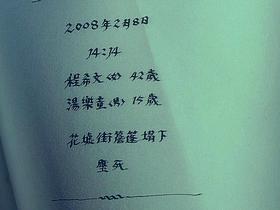 2008年2月8日
14:14
程希文(女) 42歲
湯樂童(男) 15歲
花墟街簷篷塌下
壓死